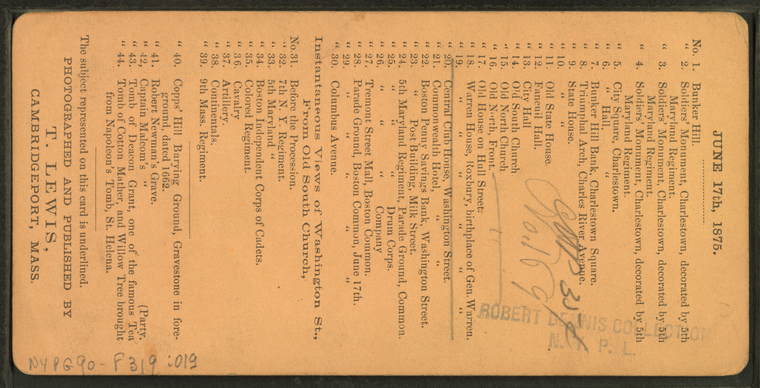 JUNE 17th, 1875.
No. 1. Bunker Hill.
" 2. Soldiers' Monument, Charlestown, decorated by 5th
Maryland Regiment.
" 3. Soldiers' Monument, Charlestown, decorated by 5th
Maryland Regiment.
" 4. Soldiers' Monument, Charlestown, decorated by 5th
Maryland Regiment.
" 5. City Square, Charlestown.
" 6. " Hall, "
" 7. Bunker Hill Bank, Charlestown Square.
" 8. Triumphal Arch, Charles River Avenue.
" 9. State House.
" 10. " "
" 11. Old State House.
" 12. Faneuil Hall.
" 13. City Hall
" 14. Old South Church
" 15. Old North Church
" 16. Old North, Front
" 17. Old House on Hull Street.
" 18. Warren House, Roxbury, birthplace of Gen. Warren.
" 19. " " " " " "
" 20. Central Club House, Washington Street.
" 21. Commonwealth Hotel, " "
" 22. Boston Penny Savings Bank, Washington Street.
" 23. " Post Building, Milk Street.
" 24. 5th Maryland Regiment, Parade Ground, Common.
" 25. " " " Drum Corps.
" 26. " " " Company
" 27. Tremont Street Mall, Boston Common.
" 28. Parade Ground, Boston Common, June 17th.
" 29. " " " " "
" 30. Columbus Avenue.
Instantaneous Views of Washington St.,
From Old South Church,
No. 31. Before the Procession.
" 32. 7th N. Y. Regiment.
" 33. 5th Maryland "
" 34. Boston Independent Corps of Cadets.
" 35. Colored Regiment.
" 36. Cavalry
" 37. Artillery.
" 38. Continentals.
" 39. 9th Mass. Regiment.
" 40. Copps' Hill Burring Ground, Gravestone in fore-
ground dated 1662.
" 41. Robert Newman's Grave.
" 42. Captain Malcom's " (Party.
" 43. Tomb of Deacon Grant, one of the famous Tea
" 44. Tomb of Cotton Mather, and Willow Tree brought
from Napoleon's Tomb, St. Helena.
The subject represented on this card is underlined.
PHOTOGRAPHED AND PUBLISHED BY
T. LEWIS,
CAMBRIDGEPORT, MASS.
ROBERT DENNIS COLLECTION
N. Y. P. L.
NYPG90-F319:019